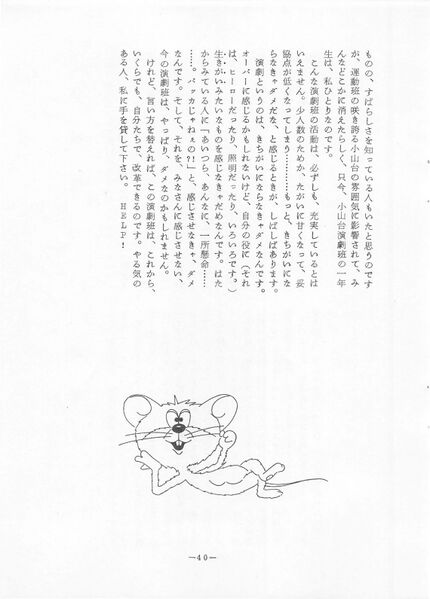 ものの、すばらしさを知っている人もいたと思うのです
が、運動班の咲き誇る小山台の雰囲気に影響されて、み
んなどこかに消えたらしく、只今、小山台演劇班の一年
生は、私ひとりなのです。
こんな演劇班の活動は、必ずしも、充実しているとは
いえません。少人数のためか、たがいに甘くなって、妥
協点が低くなってしまう…………もっと、きちがいにな
らなきゃダメだな、と感じるときが、しばしばあります。
演劇というのは、きちがいにならなきゃダメなんです。
オーバーに感じるかもしれないけど、自分の役に(それ
は、ヒーローだったり、照明だったり、いろいろです。)
生きがいみたいなものを感じなきゃだめなんです。はた
からみている人に「あいつら、あんなに、一所懸命……
…。バッカじゃねぇの?!」と、感じさせなきゃ、ダメ
なんです。そして、それを、みなさんに感じさせない、
今の演劇班は、やっぱり、ダメなのかもしれません。
けれど、言い方を替えれば、この演劇班は、これから、
いくらでも、自分たちで、改革できるのです。やる気の
ある人、私に手を貸して下さい。 HELP!
—40—